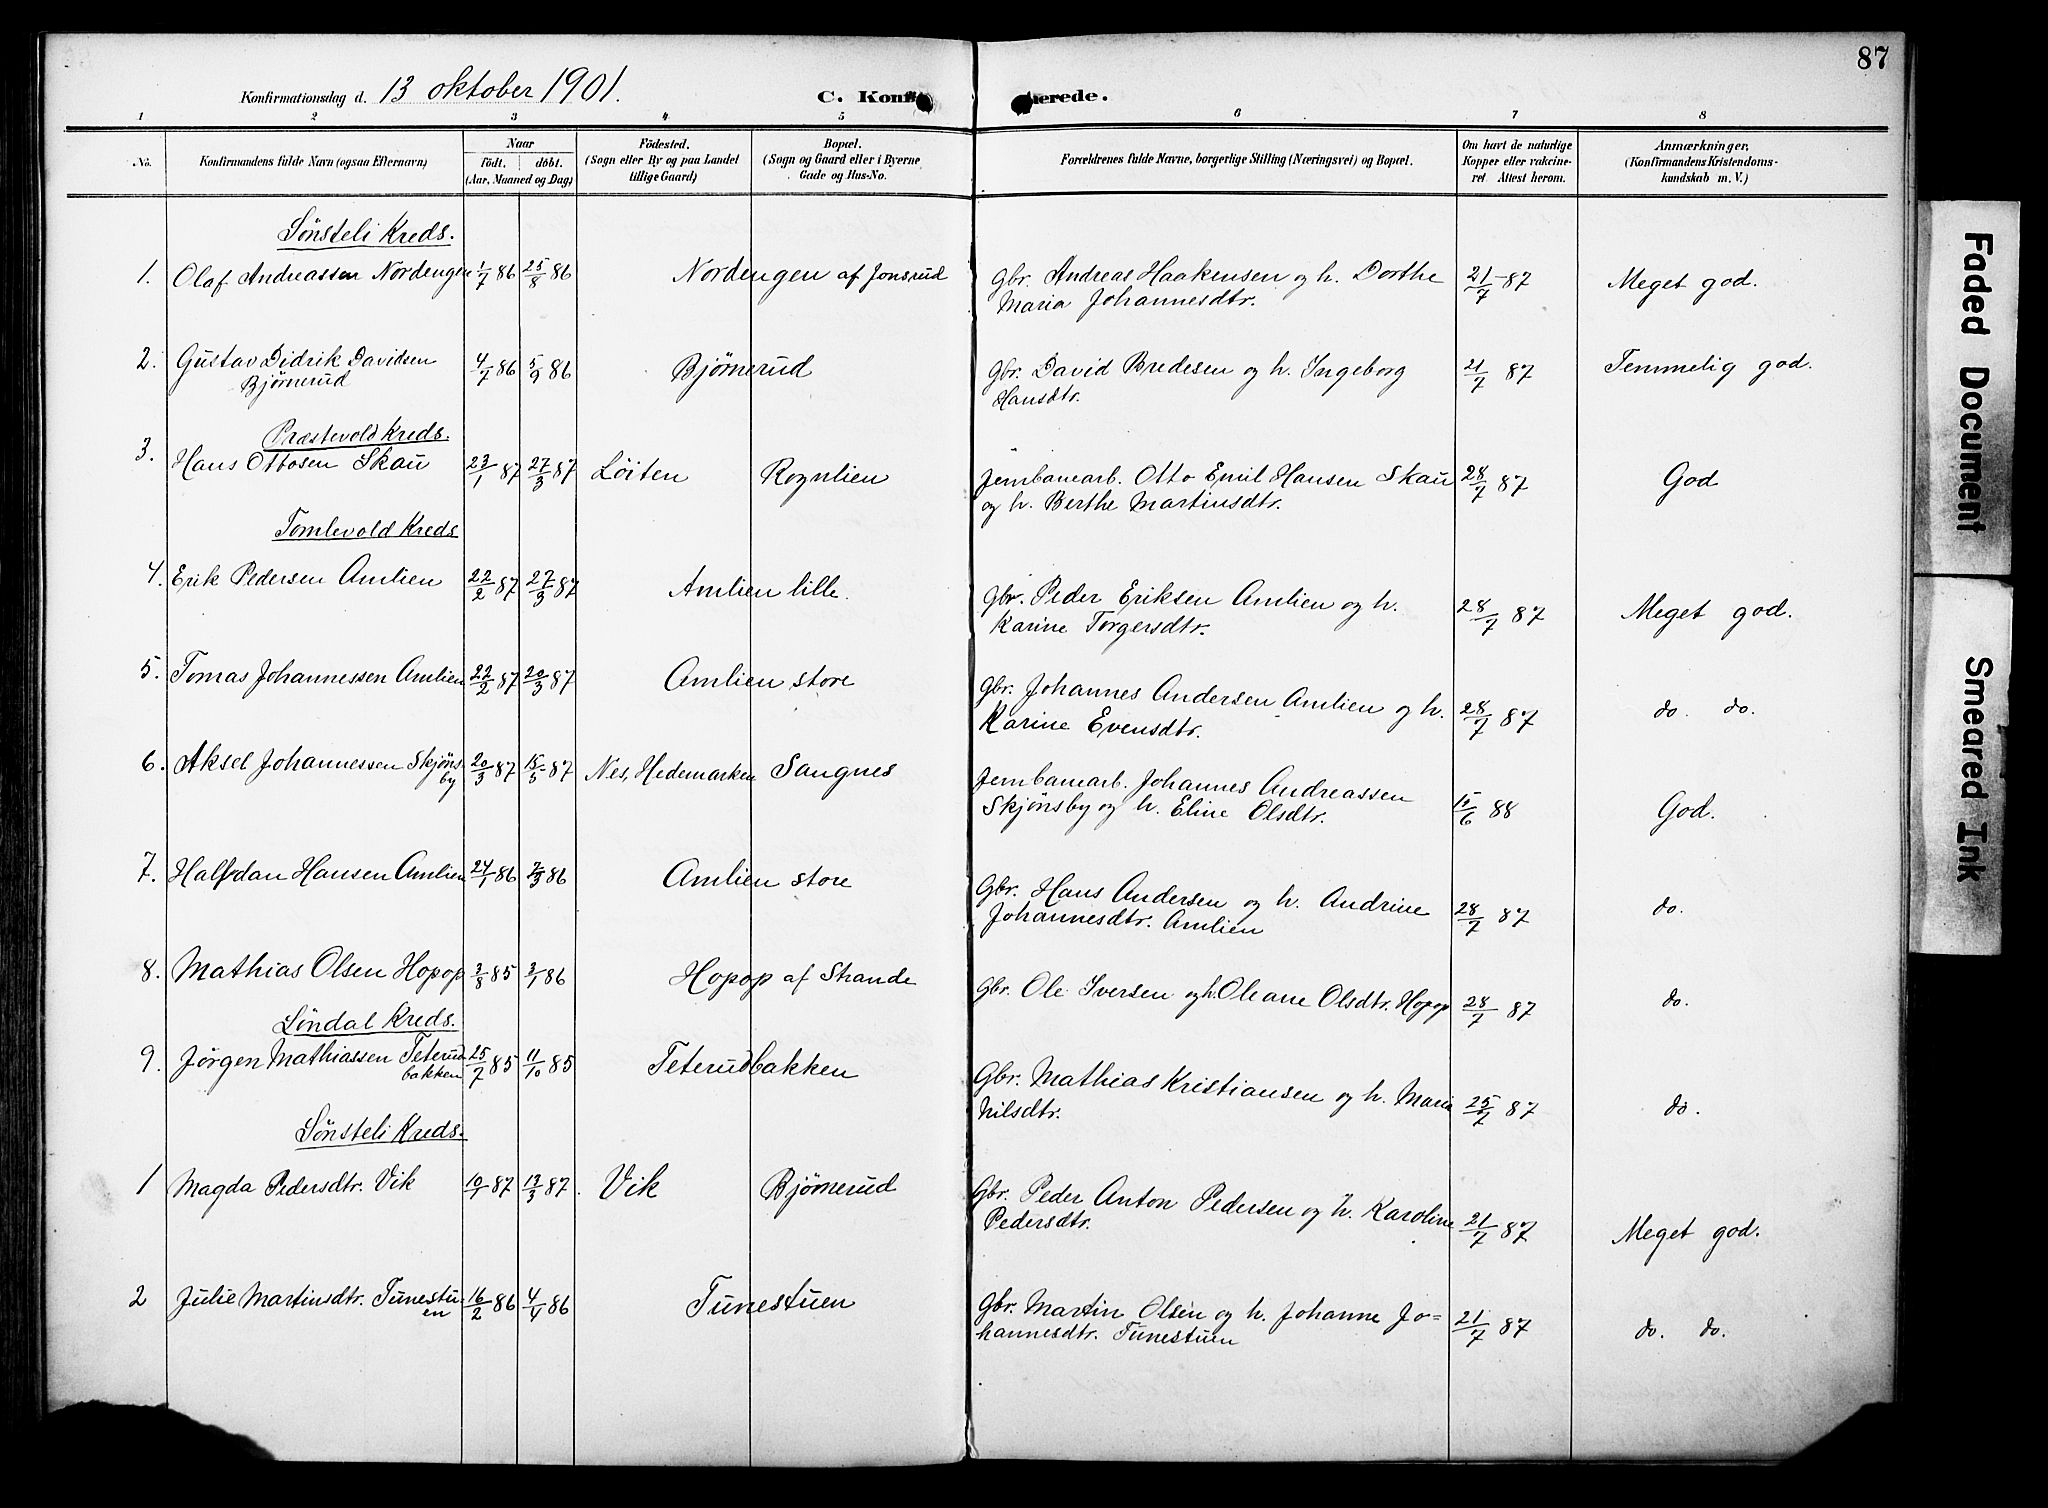 87
Konfirmationsdag d. 13 oktober 1901.
C. Konfi
merede.
1 2 3 4 5 6 7 8
No.
Konfirmandens fulde Navn (ogsaa Efternavn)
Naar
födt. döbt.
(Aar, Maaned og Dag)
Födested.
(Sogn eller By og paa Landet
tillige Gaard)
Bopæl.
(Sogn og Gaard eller i Byerne
Gade og Hus-No.
Forældrenes fulde Navne, borgerlige Stilling (Næringsvei) og Bopæl.
Om havt de naturlige
Kopper eller vakcine-
ret Attest herom.
Anmærkninger,
(Konfirmandens Kristendoms-
kundskab m. V.)
Sönsteli Kreds.
1. Olaf Andreassen Nordengen 1/7 86 25/8 86 Nordengen af Jonsrud Gbr. Andreas Haakensen og h. Dorthe 21/7 87 Meget god.
Maria Johannesdtr.
2. Gustav Didrik Davidsen 4/7 86 5/9 86 Bjørnerud Gbr. David Bredesen og h. Ingeborg 21/7 87 Temmelig god.
Bjørnerud Hansdtr.
Præstevold Kreds.
3. Hans Ottosen Skau 23/1 87 27/3 87 Löiten Rognlien Jernbanearb. Otto Emil Hansen Skau 28/7 87 God
og h. Berthe Martinsdtr.
Tomlevold Kreds
4. Erik Pedersen Amlien 22/2 87 27/3 87 Amlien lille. Gbr. Peder Eriksen Amlien og h. 28/7 87 Meget god.
Karine Torgersdtr.
5. Tomas Johannessen Amlien 22/2 87 20/3 87 Amlien store Gbr. Johannes Andersen Amlien og h. 28/7 87 do. do.
Karine Evensdtr.
6. Aksel Johannessen Skjöns- 20/3 87 15/5 87 Nes, Hedemarken Sangnes Jernbanearb. Johannes Andreassen 15/6 88 God.
by Skjönsby og h. Eline Olsdtr.
7. Halfdan Hansen Amlien 24/1 86 /3 86 Amlien store Gbr. Hans Andersen og h. Andrine 28/7 87 do.
Johannesdtr. Amlien
8. Mathias Olsen Hopop 3/8 85 3/1 86 Hopop af Strande Gbr. Ole Iversen og h. Oleane Olsdtr. Hopop 28/7 87 do.
Löndal Kreds.
9. Jørgen Mathiassen Teterud 25/7 85 11/10 85 Teterudbakken Gbr. Mathias Kristiansen og h. Maria 25/7 87 do.
bakken Nilsdtr.
Sönsteli Kreds.
1 Magda Pedersdtr. Vik 10/1 87 13/3 87. Vik Bjørnerud Gbr. Peder Anton Pedersen og h. Karoline 21/7 87 Meget god.
Pedersdtr.
2 Julie Martinsdtr. Tunestu- 16/2 86 4/4 86 Tunestuen Gbr. Martin Olsen og h. Johanne Jo= 21/7 87 do. do.
en hannesdtr. Tunestuen
Faded Document
Smeared Ink